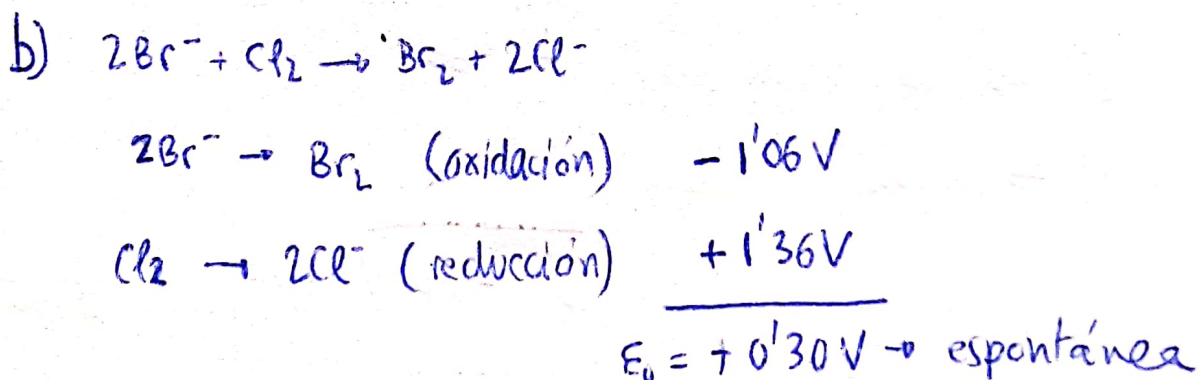 b) 2Br⁻ + Cl₂ → Br₂ + 2Cl⁻
2Br⁻ → Br₂ (oxidación) - 1'06 V
Cl₂ → 2Cl⁻ (reducción) + 1'36 V
E₀ = + 0'30 V → espontánea